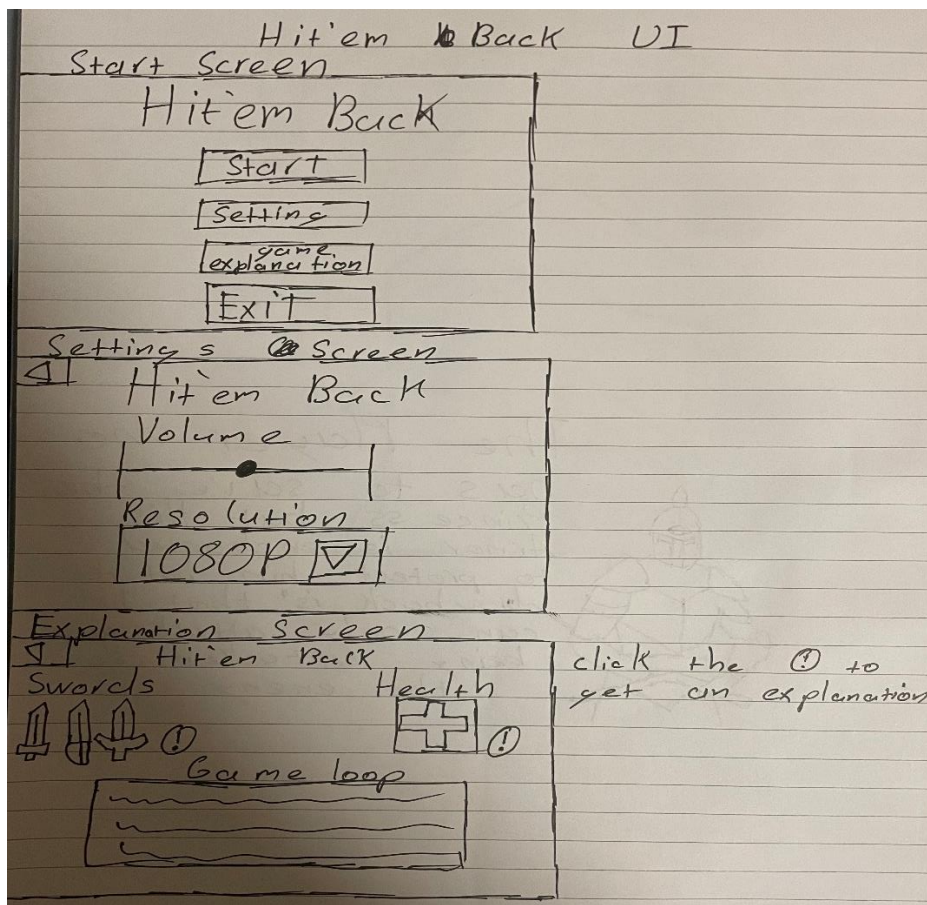 Hit'em Back UI
Start Screen
Hit'em Back
Start
Setting
game
explanation
Exit
Settings Screen
Hit'em Back
Volume
Resolution
1080P
Explanation Screen
Hit'em Back
Swords
Health
!
!
Game loop
click the ! to
get an explanation